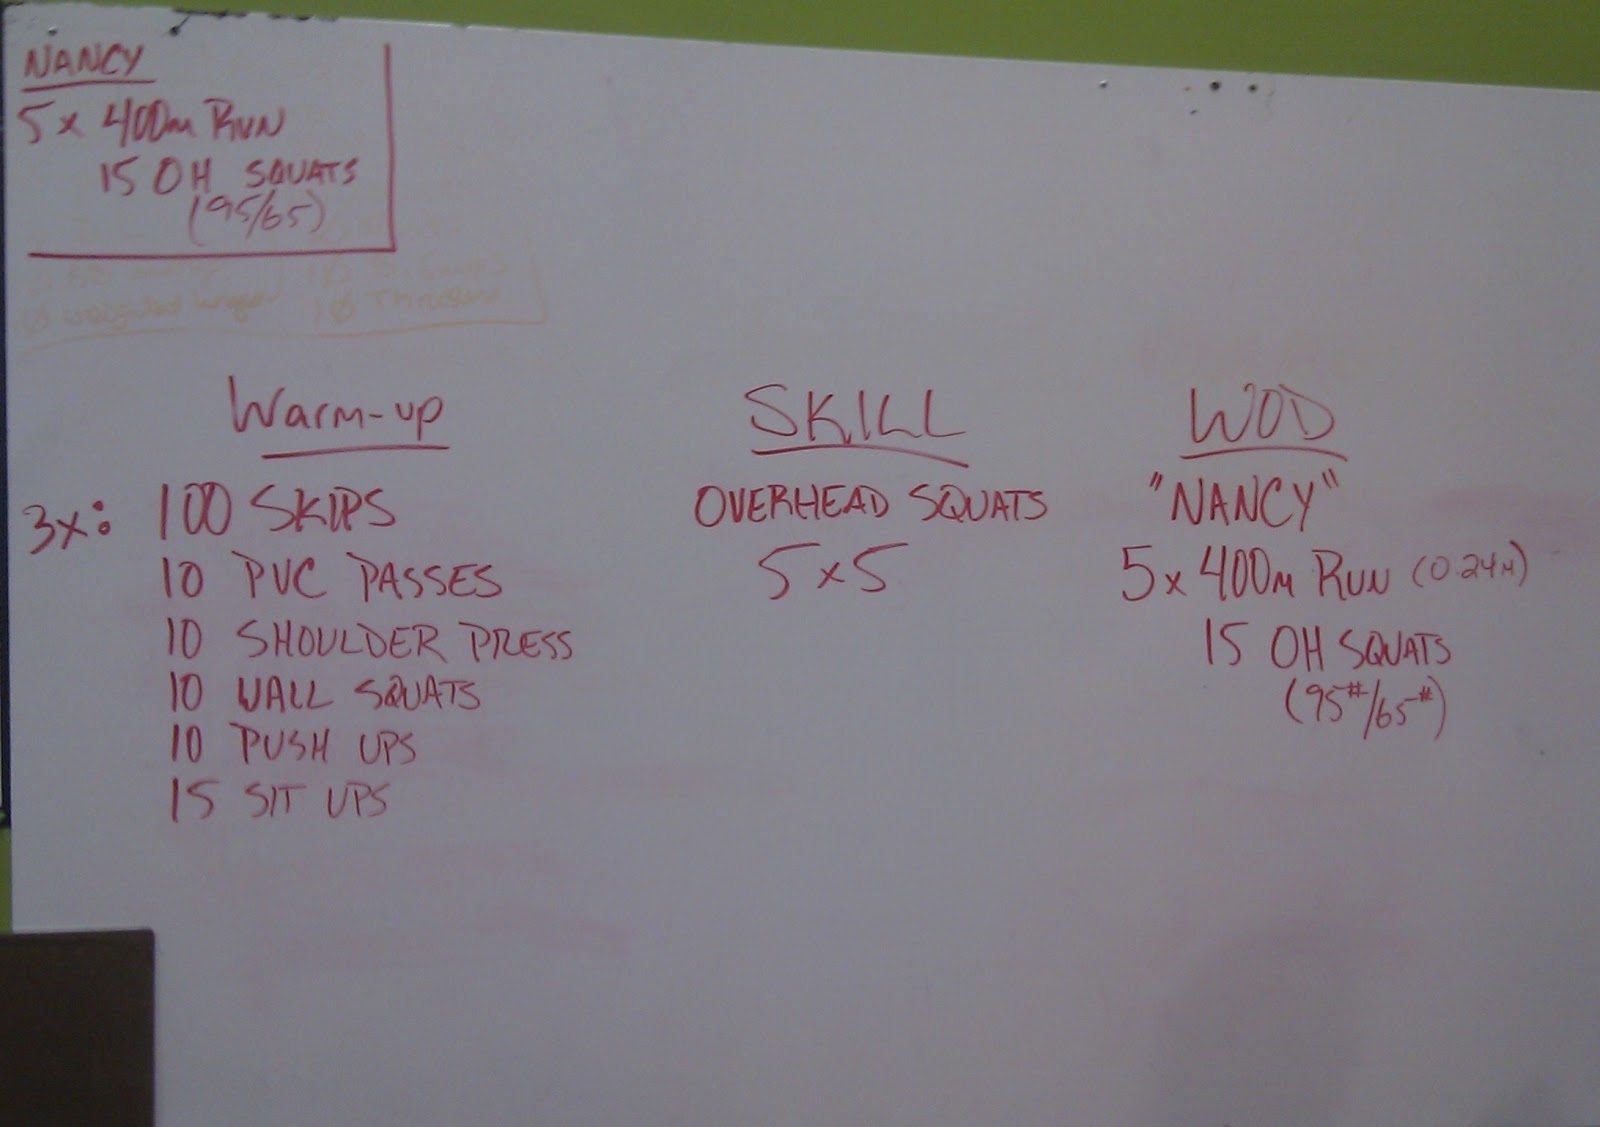 NANCY
5 x 400m RUN
15 OH SQUATS
(95/65)
Warm-up
3x: 100 SKIPS
10 PVC PASSES
10 SHOULDER PRESS
10 WALL SQUATS
10 PUSH UPS
15 SIT UPS
SKILL
OVERHEAD SQUATS
5 x 5
WOD
"NANCY"
5 x 400m RUN (0.24M)
15 OH SQUATS
(95#/65#)